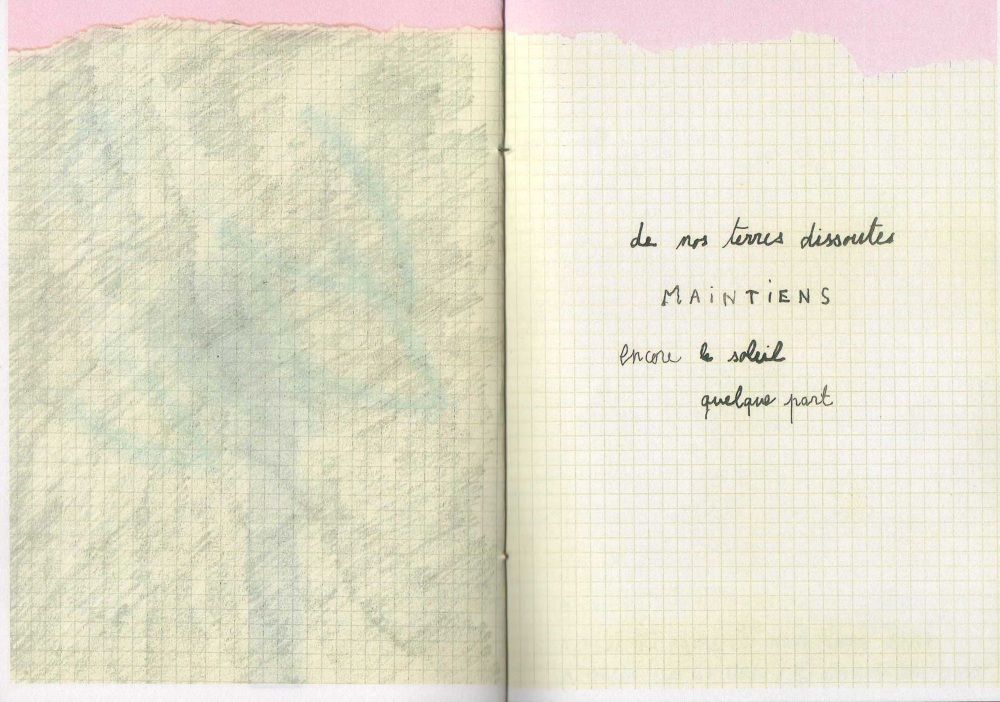 de nos terres dissoutes
MAiNTiENS
encore le soleil
quelque part